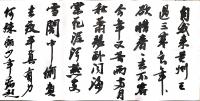 自我來黃州已
過三寒食年年
欲惜春春去不容惜
今年又苦雨兩月
秋蕭瑟卧聞海
棠花泥汙燕支
雪闇中偷負
去夜半真有力
何殊病少年病起